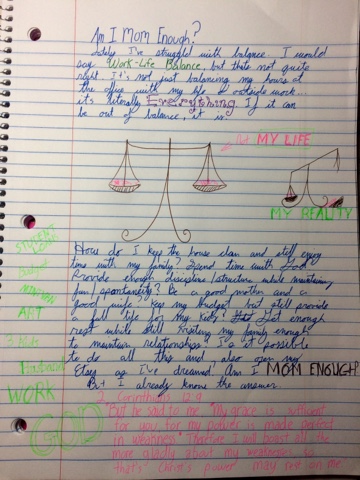 Am I Mom Enough?
Lately I've struggled with balance. I would
say Work-Life Balance, but thats not quite
right. It's not just balancing my hours at
the office with my life outside work...
it's literally Everything. If it can
be out of balance, it is.
MY LIFE
MY REALITY
How do I keep the house clean and still enjoy
time with my family? Spend time with God
Provide enough discipline/structure while maintaining
fun/spontaneity? Be a good mother and a
good wife? keep my budget but still provide
a full life for my kids? Get enough
rest while still visiting my family enough
to maintain relationships? Is it possible
to do all this and also open my
Etsy as I've dreamed? Am I MOM ENOUGH?
But I already know the answer.
Budget
ART
3 Kids
Husband
WORK
GOD
2 Corinthians 12:9
"But he said to me "My grace is sufficient
for you, for my power is made perfect
in weakness" Therefore I will boast all the
more gladly about my weaknesses so
that Christ's power may rest on me